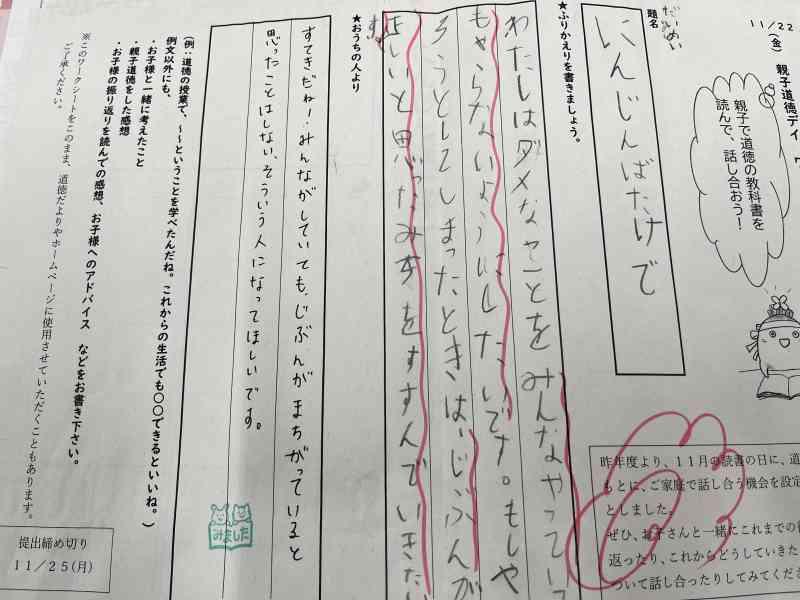 11/22(金) 親子道徳デイ ワ
親子で道徳の教科書を
読んで、話し合おう!
昨年度より、11月の読書の日に、道
もとに、ご家庭で話し合う機会を設定
としました。
ぜひ、お子さんと一緒にこれまでの
返ったり、これからどうしていきた
ついて話し合ったりしてみてくださ
だいめい
題名
にんじんばたけで
★ふりかえりを書きましょう。
わたしはダメなことをみんなやってい
もやらないようにしたいです。もしや
ろうとしてしまったときは、じぶんが
正しいと思ったみちをすすんでいきたい
す。
★おうちの人より
すてきだね!みんながしていても、じぶんがまちがっていると
思ったことはしない、そういう人になってほしいです。
みました
(例:道徳の授業で、~~ということを学べたんだね。これからの生活でも○○できるといいね。)
例文以外にも、
・お子様と一緒に考えたこと
・親子道徳をした感想
・お子様の振り返りを読んでの感想、お子様へのアドバイス などをお書き下さい。
※このワークシートをこのまま、道徳だよりやホームページに使用させていただくこともあります。
ご了承ください。
提出締め切り
11/25(月)